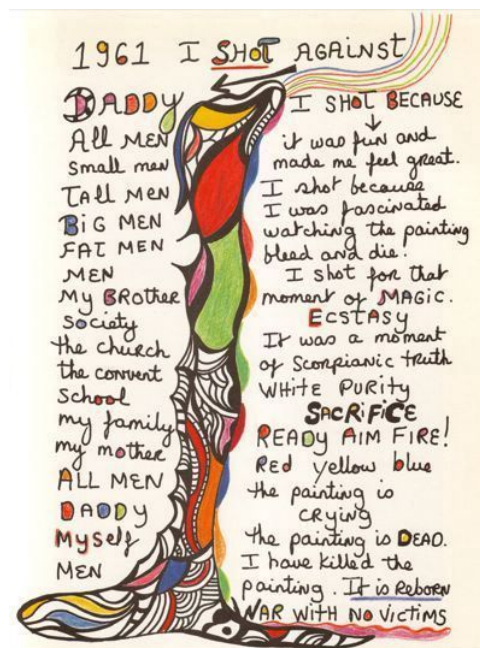 1961 I SHOT AGAINST
DADDY
All MEN
Small men
Tall MEN
BiG MEN
FAT MEN
MEN
My BRother
Society
the church
the convent
School
my family
my mother
ALL MEN
DADDY
Myself
MEN
I SHOT BECAUSE
it was fun and
made me feel great.
I shot because
I was fascinated
watching the painting
bleed and die.
I shot for that
moment of MAGIC.
ECSTASY
It was a moment
of Scorpianic truth
WHITE PURITY
SACRiFiCE
READY AIM FIRE!
Red yellow blue
the painting is
CRYING
the painting is DEAD.
I have killed the
painting. It is Reborn
WAR WITH NO VICTIMS